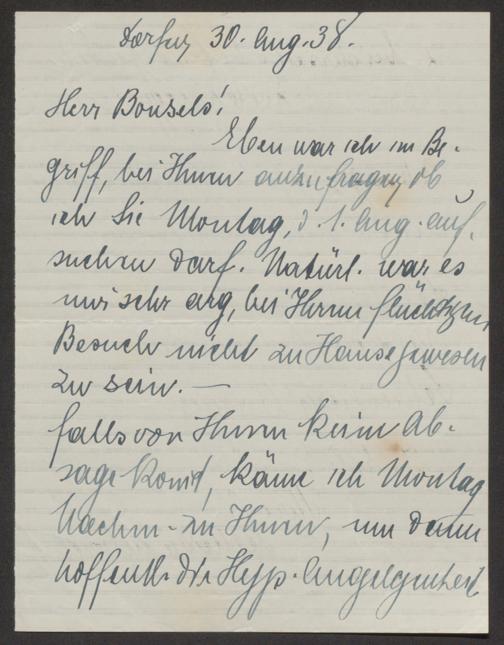 Dorfen 30. Aug. 38.
Herr Bonsels!
Eben war ich im Be-
griff, bei Ihnen anzufragen, ob
ich Sie Montag, d. 1. Aug. auf-
suchen darf. Natürl. war es
mir sehr arg, bei Ihrem flüchtigen
Besuch nicht zu Hause gewesen
zu sein. —
Falls von Ihnen keine Ab-
sage kommt, käme ich Montag
Nachm. zu Ihnen, um dann
hoffentl. die Hyp. Angelegenheit